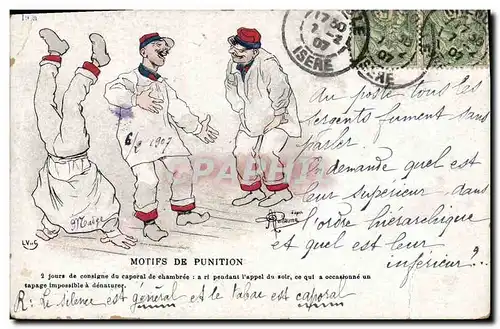 17 30
2 - 2
07
ISERE
6/2 1907
Au poste tous les
sergents fument sans
parler.
On demande quel est
leur supérieur, dans
l'ordre hiérarchique
et quel est leur
inférieur ?..
LV & Cie
MOTIFS DE PUNITION
2 jours de consigne du caporal de chambrée : a ri pendant l'appel du soir, ce qui a occasionné un
tapage impossible à dénaturer.
R : Le silence est général et le tabac est caporal